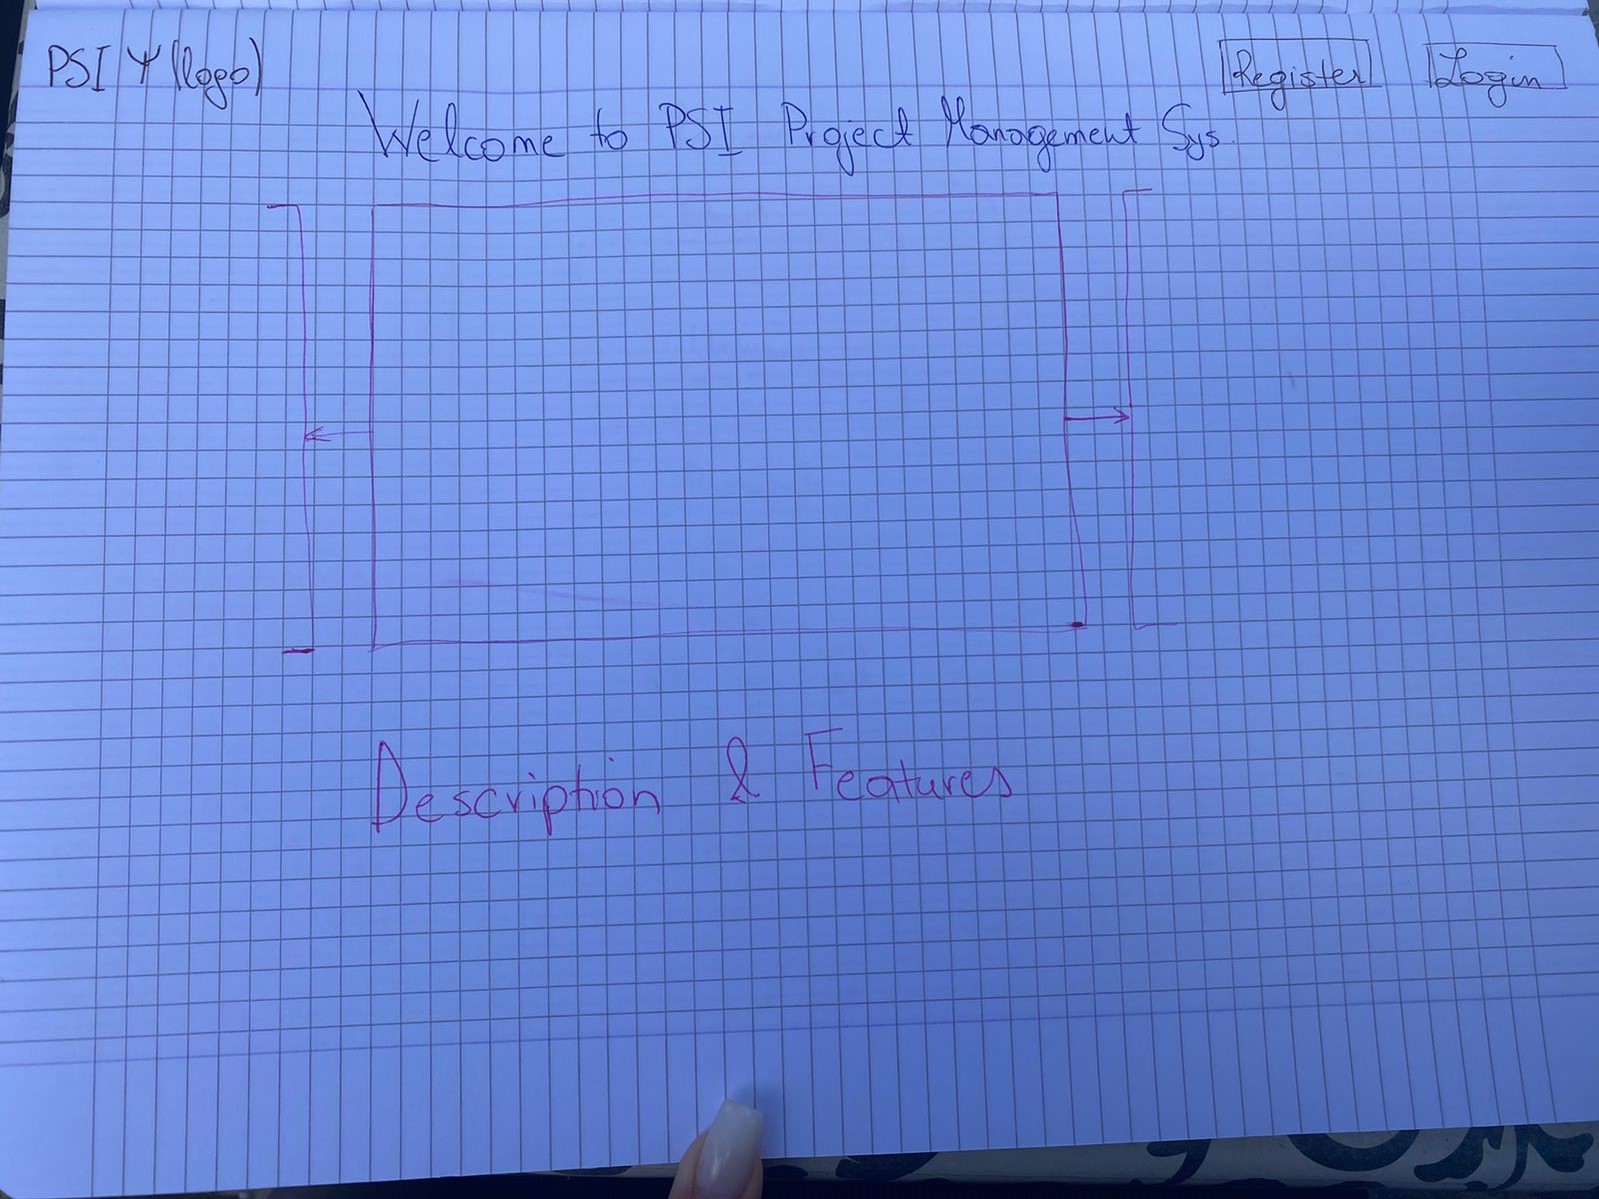 PSI Ψ (logo)
Register
Login
Welcome to PSI Project Management Sys.
Description & Features